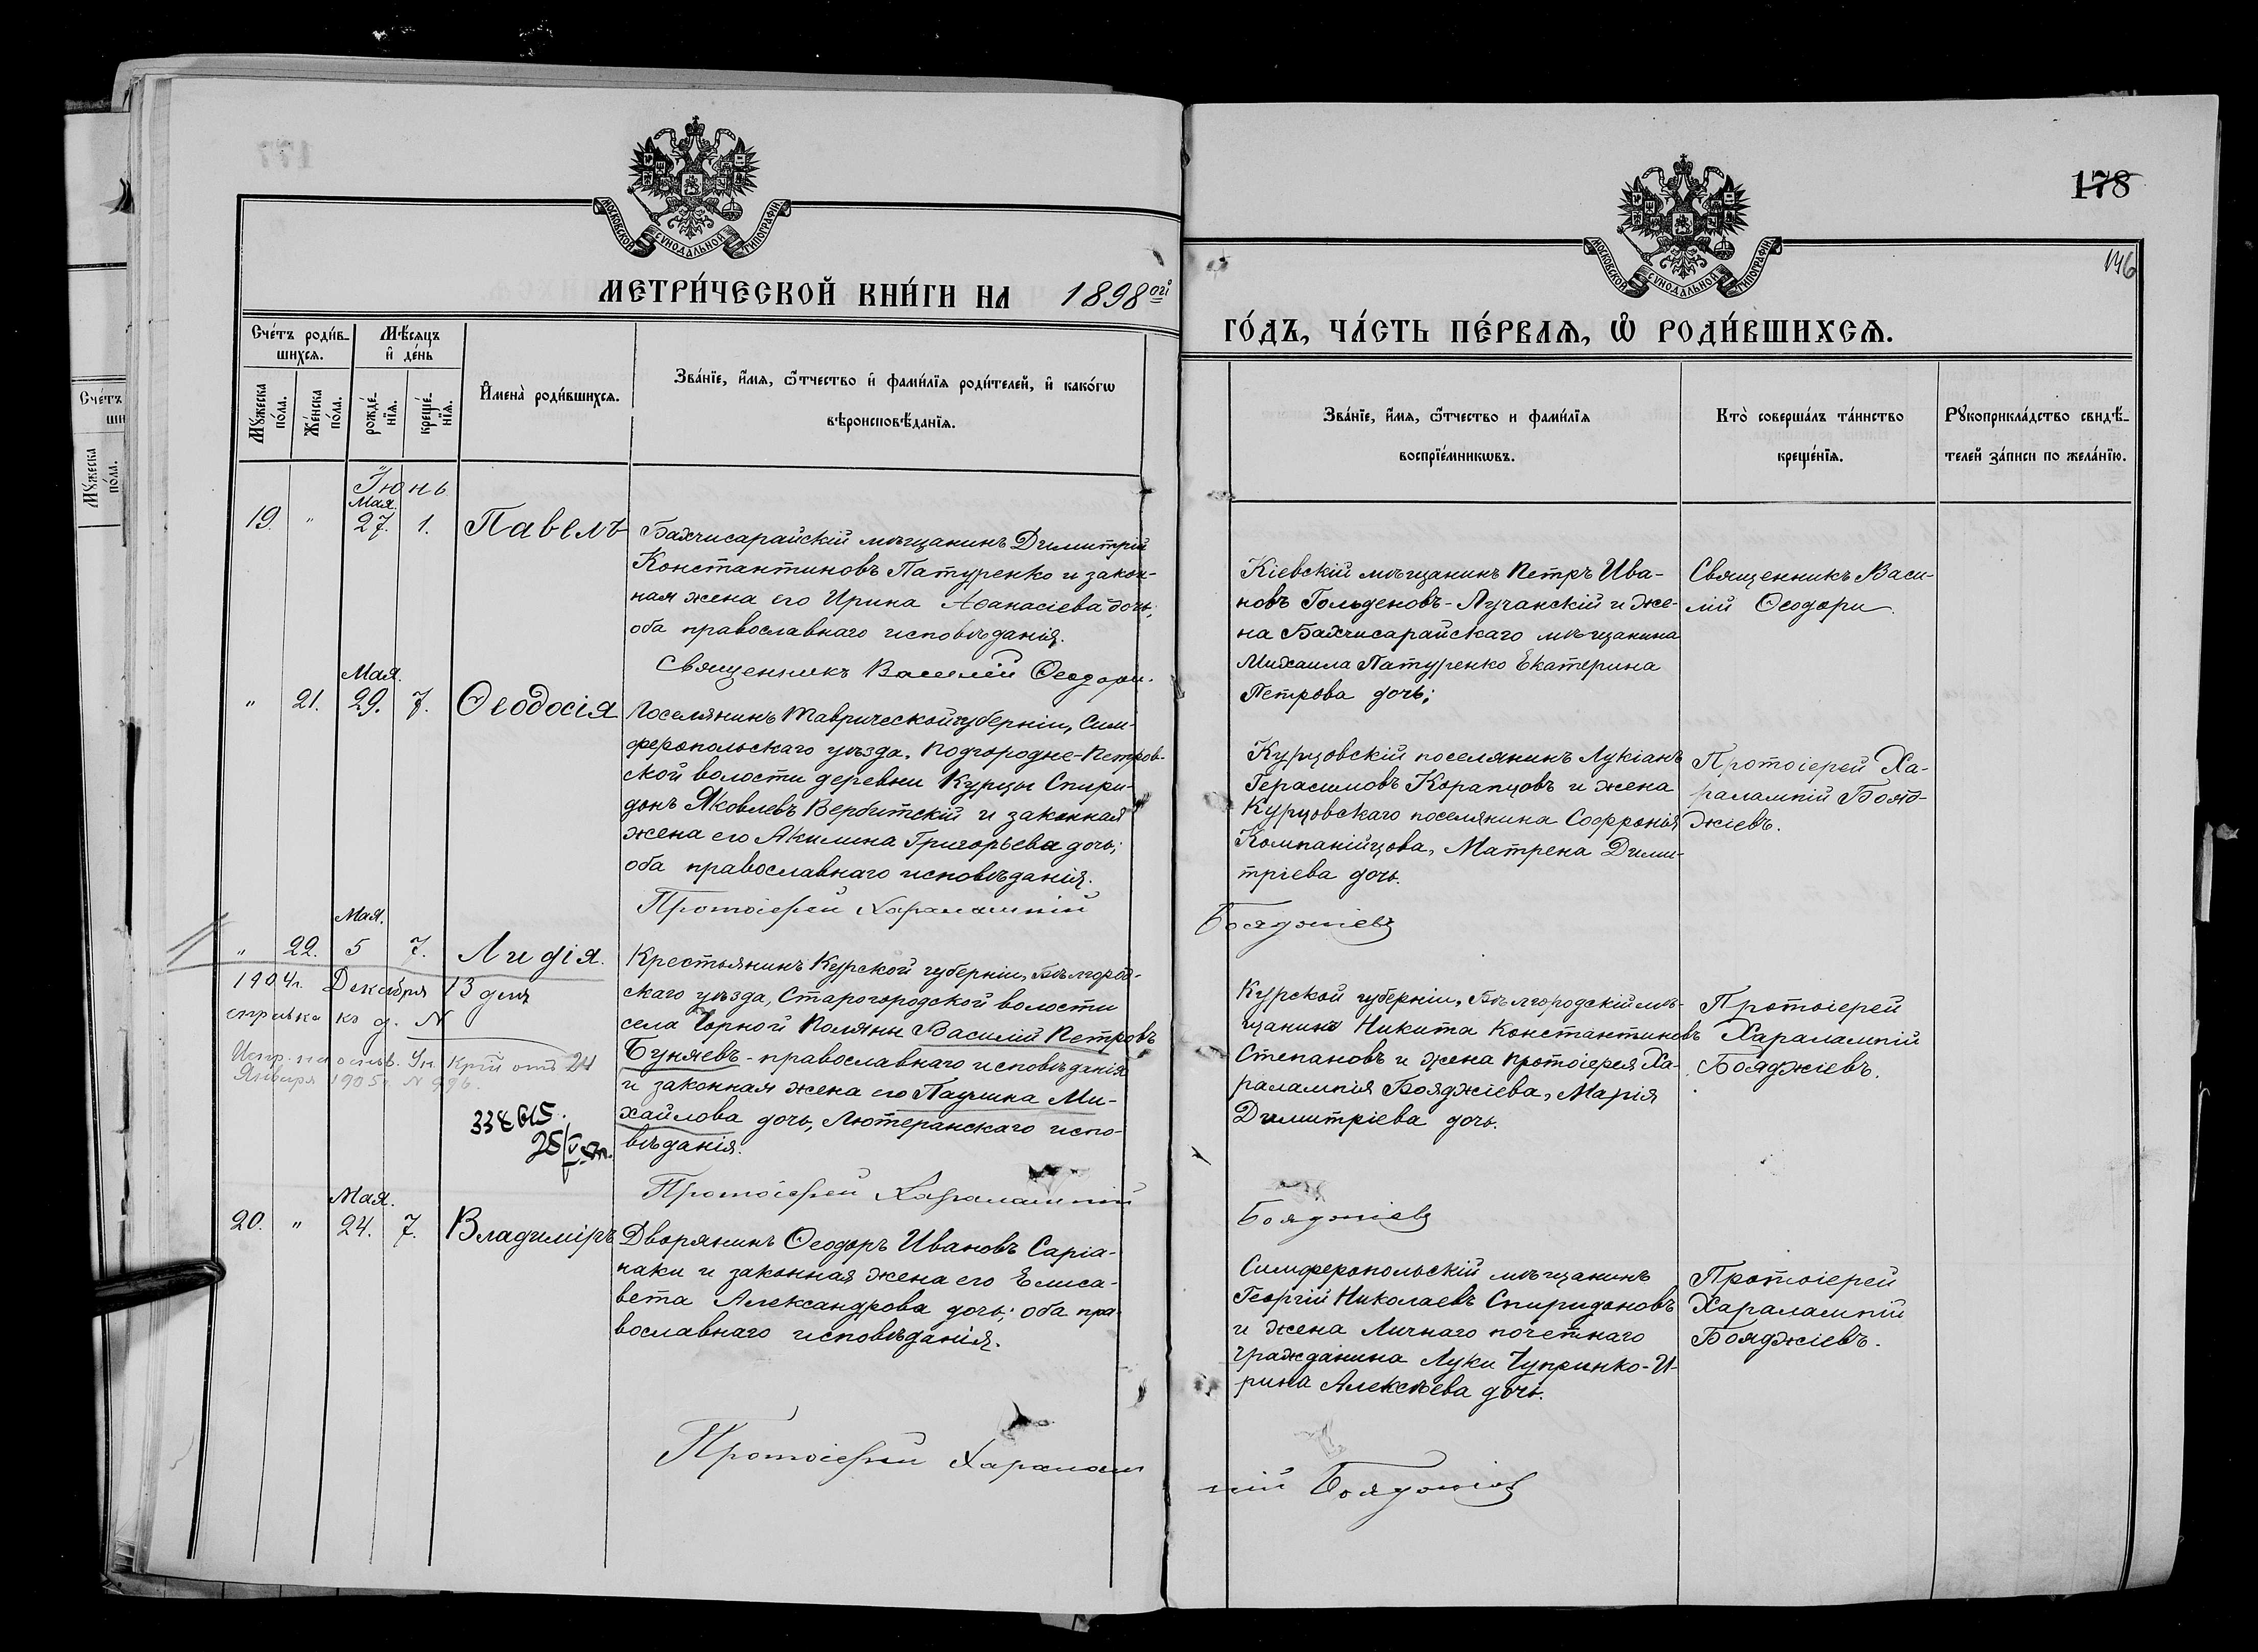 177
МОСКОВСКОЙ СѴНОДАЛЬНОЙ ТИПОГРАФІИ
МЕТРИ́ЧЕСКОЙ КНИ́ГИ НА 1898ой
Сче́тъ роди́в-
шихся.
Мѣ́сяцъ
и҆ де́нь
Мꙋ́жеска
по́ла.
Же́нска
по́ла.
рожде́-
нїя.
креще́-
нїя.
И҆мена̀ роди́вшихся.
Зва́нїе, и҆́мя, ѻ҆́тчество и҆ фами́лїя роди́телей, и҆ како́гѡ
вѣроисповѣ́данїя.
Іюнь
Мая.
19. " 27. 1. Павелъ
Бахчисарайскій мѣщанинъ Димитрій
Константиновъ Патуренко и закон-
ная жена его Ирина Аѳанасіева дочь;
оба православнаго исповѣданія.
Священникъ Василій Ѳеодори.
Мая.
" 21. 29. 7. Ѳеодосія
Поселянинъ Таврической губерніи, Сим-
феропольскаго уѣзда, Подгородне-Петров-
ской волости деревни Курцы Спири-
донъ Яковлевъ Вербитскій и законная
жена его Акилина Григорьева дочь;
оба православнаго исповѣданія.
Протоіерей Харалампій
Мая.
" 22. 5 7. Лидія.
Крестьянинъ Курской губерніи, Бѣлгород-
скаго уѣзда, Старогородской волости
села Чорной Поляны Василій Петровъ
Буняевъ - православнаго исповѣданія
и законная жена его Паулина Ми-
хайлова дочь, Лютеранскаго испо-
вѣданія.
Протоіерей Харалампій
1904г. Декабря 13 дня
справка къ д. N
Января 1905г. N 996.
338615.
Мая.
20. " 24. 7. Владиміръ
Дворянинъ Ѳеодоръ Ивановъ Саріа-
наки и законная жена его Елиса-
вета Александрова дочь; оба пра-
вославнаго исповѣданія.
Протоіерей Харалам
178
146
МОСКОВСКОЙ СѴНОДАЛЬНОЙ ТИПОГРАФІИ
ГО́ДЪ, ЧА́СТЬ ПЕ́РВАѦ, Ѡ҆ РОДИ́ВШИХСѦ.
Зва́нїе, и҆́мя, ѻ҆́тчество и фами́лїя
воспрїе́мникѡвъ.
Кто̀ соверша́лъ та́инство
креще́нїя.
Рꙋкоприкла́дство свидѣ́-
телей за́писи по жела́нїю.
Кіевскій мѣщанинъ Петръ Ива-
новъ Гольденовъ-Лучанскій и же-
на Бахчисарайскаго мѣщанина
Михаила Патуренко Екатерина
Петрова дочь;
Священникъ Васи-
лій Ѳеодори.
Курцовскій поселянинъ Лукіанъ
Герасимовъ Корапцовъ и жена
Курцовскаго поселянина Софронія
Компанійцова, Матрена Дими-
тріева дочь.
Протоіерей Ха-
ралампій Бояд-
жіевъ.
Бояджіевъ
Курской губерніи, Бѣлгородскій мѣ-
щанинъ Никита Константиновъ
Степановъ и жена протоіерея Ха-
ралампія Бояджіева, Марія
Димитріева дочь.
Протоіерей
Харалампій
Бояджіевъ.
Бояджіевъ
Симферопольскій мѣщанинъ
Георгій Николаевъ Спиридоновъ
и жена Личнаго почетнаго
гражданина Луки Чупринко-И-
рина Алексѣева дочь.
Протоіерей
Харалампій
Бояджіевъ.
пій Бояджіевъ
Сче́тъ
ши
Мꙋ́жеска
по́ла.